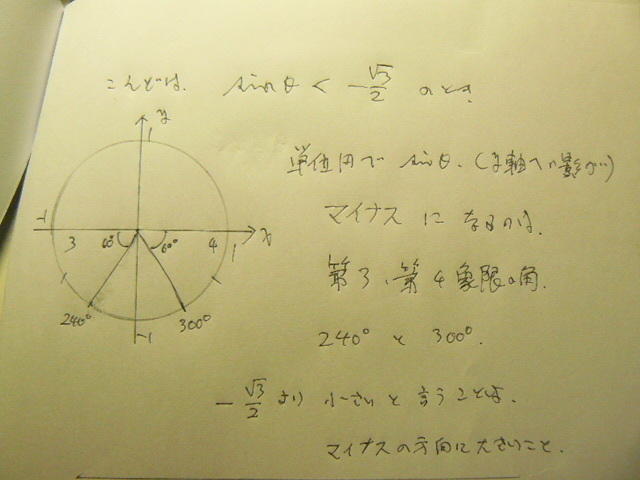 こんどは、 sinθ < -√3/2 のとき、
単位円で sinθ、(y軸への影が)
マイナス になるのは、
第3、第4象限の角、
240° と 300°.
-√3/2 より 小さいと言うことは、
マイナスの方向に大きいこと.
y
1
-1 3 60° 60° 4 1 x
240° 300°
-1